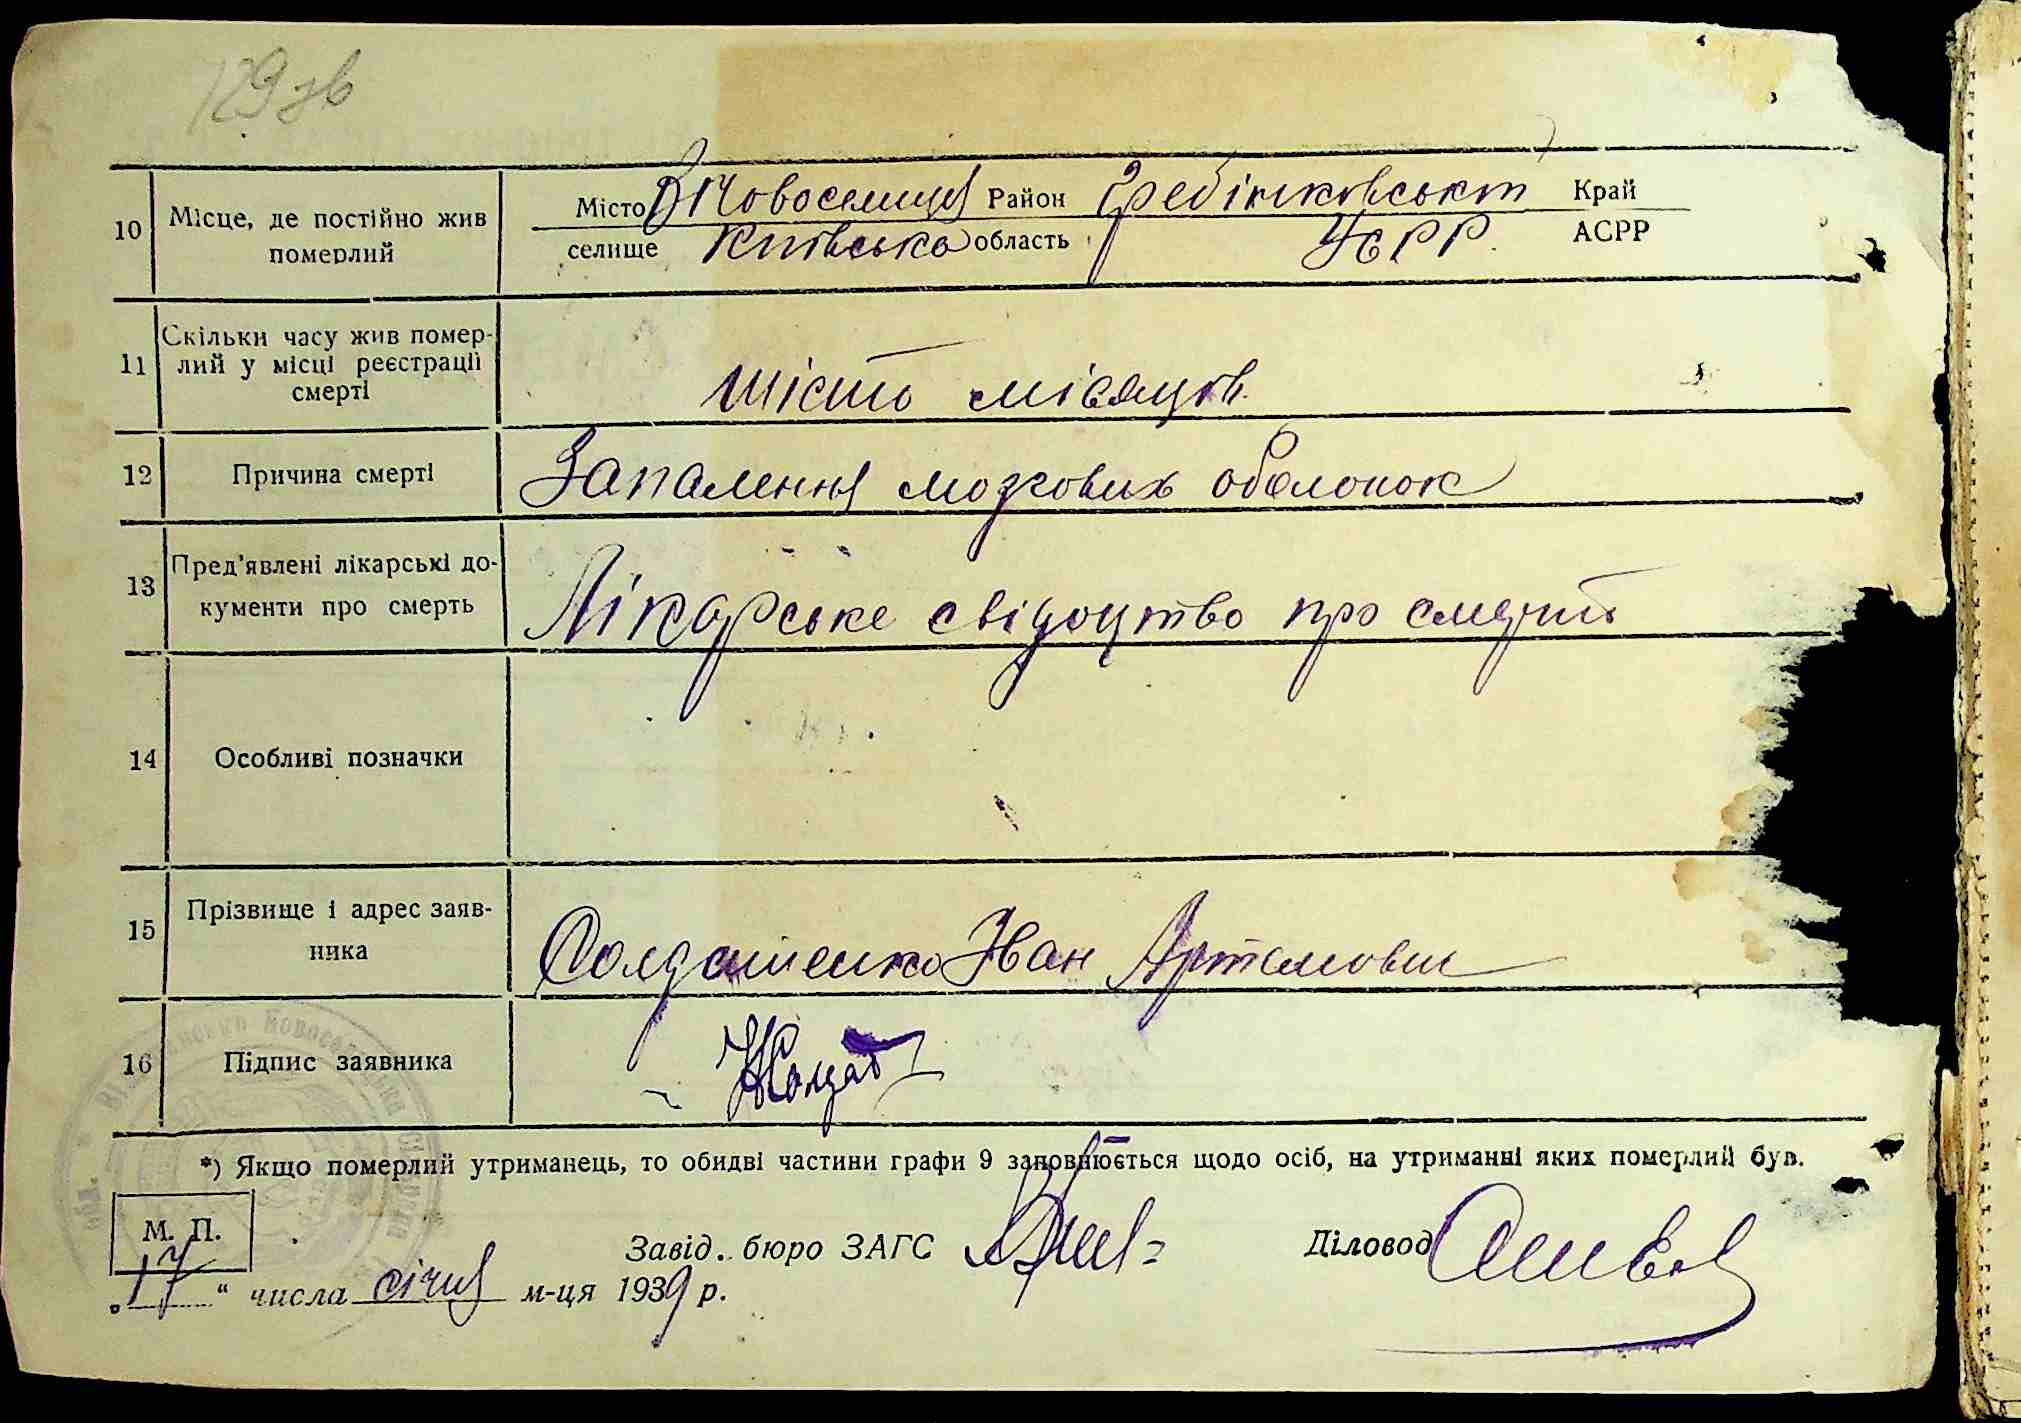 129 зв
10 Місце, де постійно жив померлий
Місто В Новоселиця Район Гребінковський Край
селище Київська область УСРР АСРР
11 Скільки часу жив помер-
лий у місці реєстрації
смерті
шість місяців
12 Причина смерті Запалення мозкових оболонок
13 Пред'явлені лікарські до-
кументи про смерть
Лікарське свідоцтво про смерть
14 Особливі позначки
15 Прізвище і адрес заяв-
ника
Солдатенко Іван Артамович
16 Підпис заявника
*) Якщо померлий утриманець, то обидві частини графи 9 заповнюється щодо осіб, на утриманні яких померлий був.
М. П.
Завід. бюро ЗАГС Діловод
„17" числа січня м-ця 1939 р.